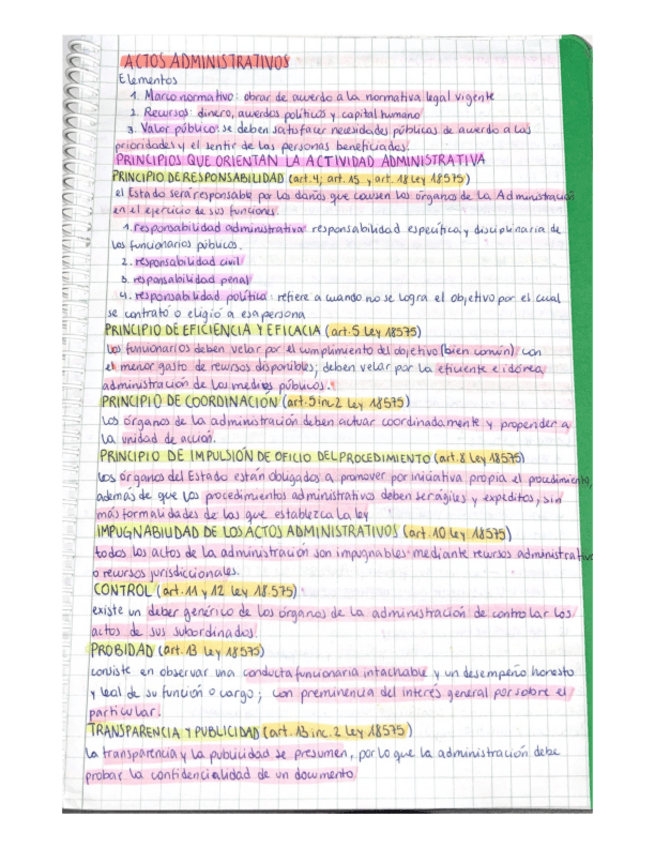 ACTOS ADMINISTRATIVOS
Elementos
1. Marco normativo: obrar de acuerdo a la normativa legal vigente
2. Recursos: dinero, acuerdos políticos y capital humano
3. Valor público: se deben satisfacer necesidades públicas de acuerdo a las
prioridades y el sentir de las personas beneficiadas.
PRINCIPIOS QUE ORIENTAN LA ACTIVIDAD ADMINISTRATIVA
PRINCIPIO DE RESPONSABILIDAD (art. 4, art. 15, y art. 18 Ley 18575)
el Estado será responsable por los daños que causen los órganos de la Administración
en el ejercicio de sus funciones.
1. responsabilidad administrativa: responsabilidad específica y disciplinaria de
los funcionarios públicos.
2. responsabilidad civil
3. responsabilidad penal
4. responsabilidad política: refiere a cuando no se logra el objetivo por el cual
se contrató o eligió a esa persona
PRINCIPIO DE EFICIENCIA Y EFICACIA (art. 5 Ley 18575)
los funcionarios deben velar por el cumplimiento del objetivo (bien común) con
el menor gasto de recursos disponibles; deben velar por la eficiente e idónea
administración de los medios públicos.
PRINCIPIO DE COORDINACION (art. 5 inc 2 Ley 18575)
Los órganos de la administración deben actuar coordinadamente y propender a
la unidad de acción.
PRINCIPIO DE IMPULSIÓN DE OFICIO DEL PROCEDIMIENTO (art. 8 Ley 18575)
los órganos del Estado están obligados a promover por iniciativa propia el procedimiento,
además de que los procedimientos administrativos deben ser ágiles y expeditos, sin
más formalidades de las que establezca la ley
IMPUGNABILIDAD DE LOS ACTOS ADMINISTRATIVOS (art. 10 Ley 18575)
todos los actos de la administración son impugnables mediante recursos administrativo
o recursos jurisdiccionales.
CONTROL (art. 11 y 12 Ley 18.575)
existe un deber genérico de los órganos de la administración de controlar los
actos de sus subordinados.
PROBIDAD (art. 13 Ley 18575)
consiste en observar una conducta funcionaria intachable y un desempeño honesto
y leal de su función o cargo; con preminencia del interés general por sobre el
particular.
TRANSPARENCIA Y PUBLICIDAD (art. 13 inc. 2 Ley 18575)
La transparencia y la publicidad se presumen, por lo que la administración debe
probar la confidencialidad de un documento